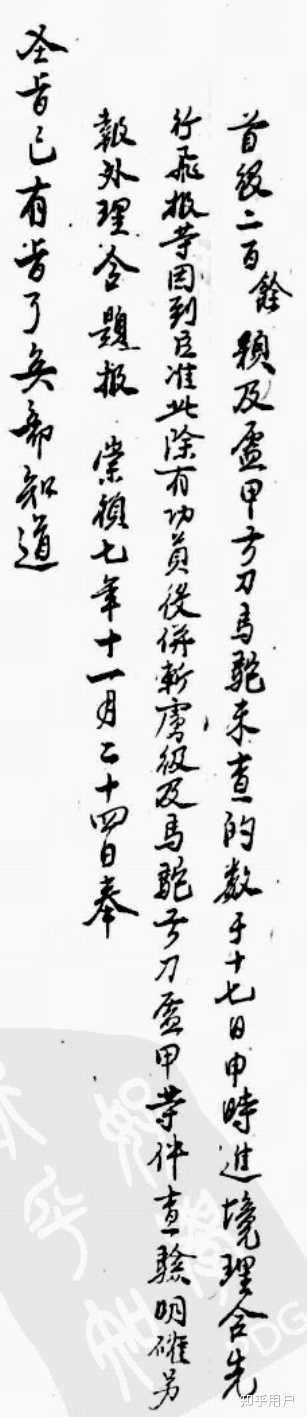 首級二百餘顆及盔甲弓刀馬駝未查的数于十七日申時進境理合先
行飛报等因到臣准此除有功員役併斬虜級及馬駝弓刀盔甲等件查驗明確另
報外理合題报 崇禎七年十一月二十四日奉
圣旨已有旨了兵部知道
知乎用户